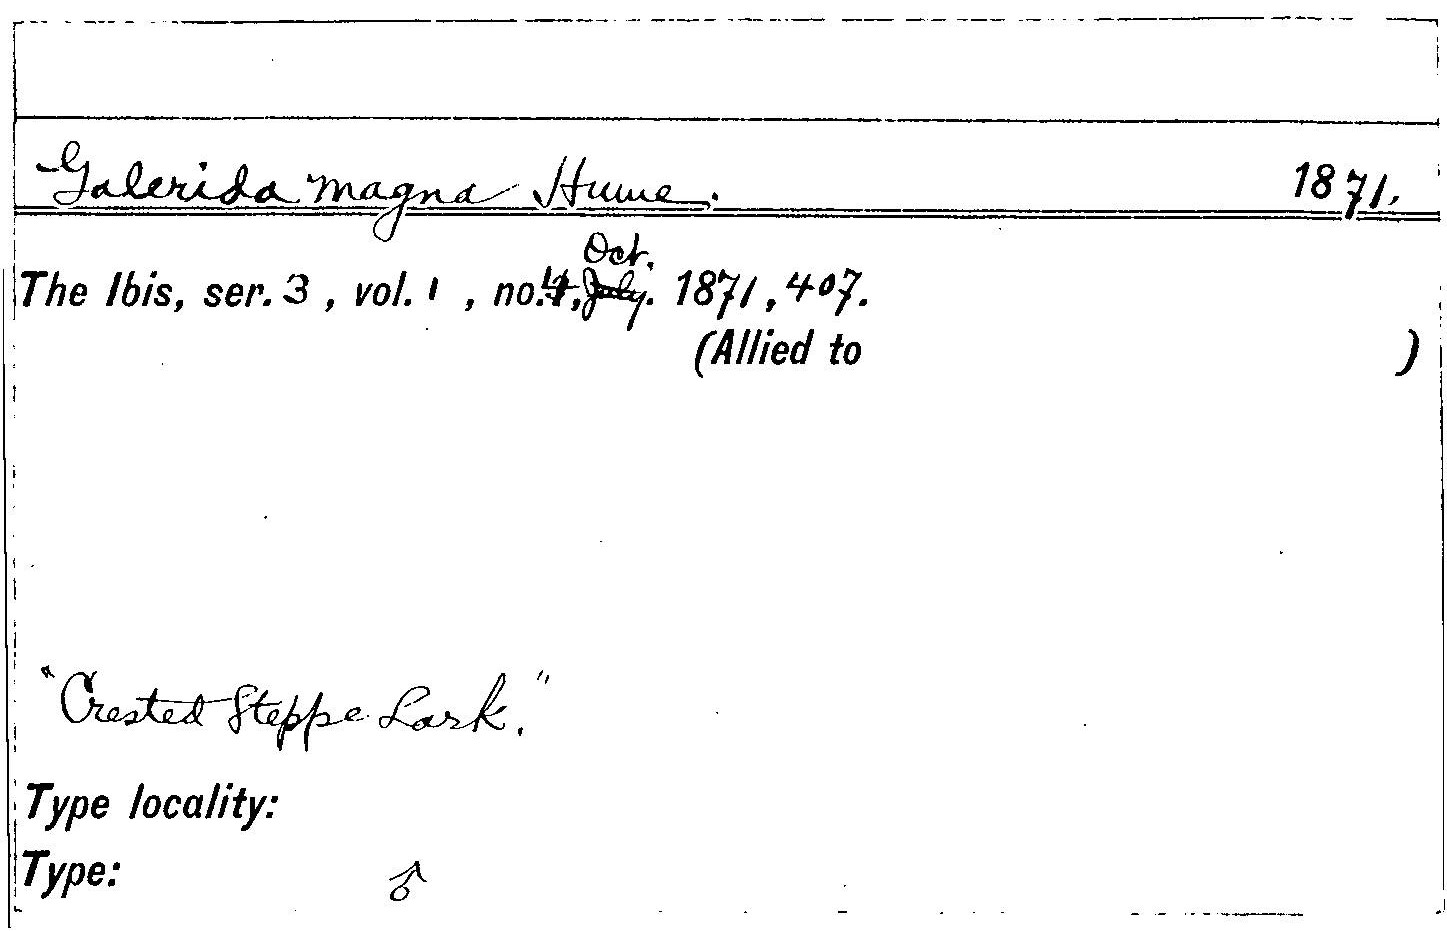 Galerida magna Hume. 1871.
Oct.
The Ibis, ser. 3 , vol. 1 , no. 4, July. 1871, 407.
(Allied to )
"Crested Steppe Lark."
Type locality:
Type: ♂